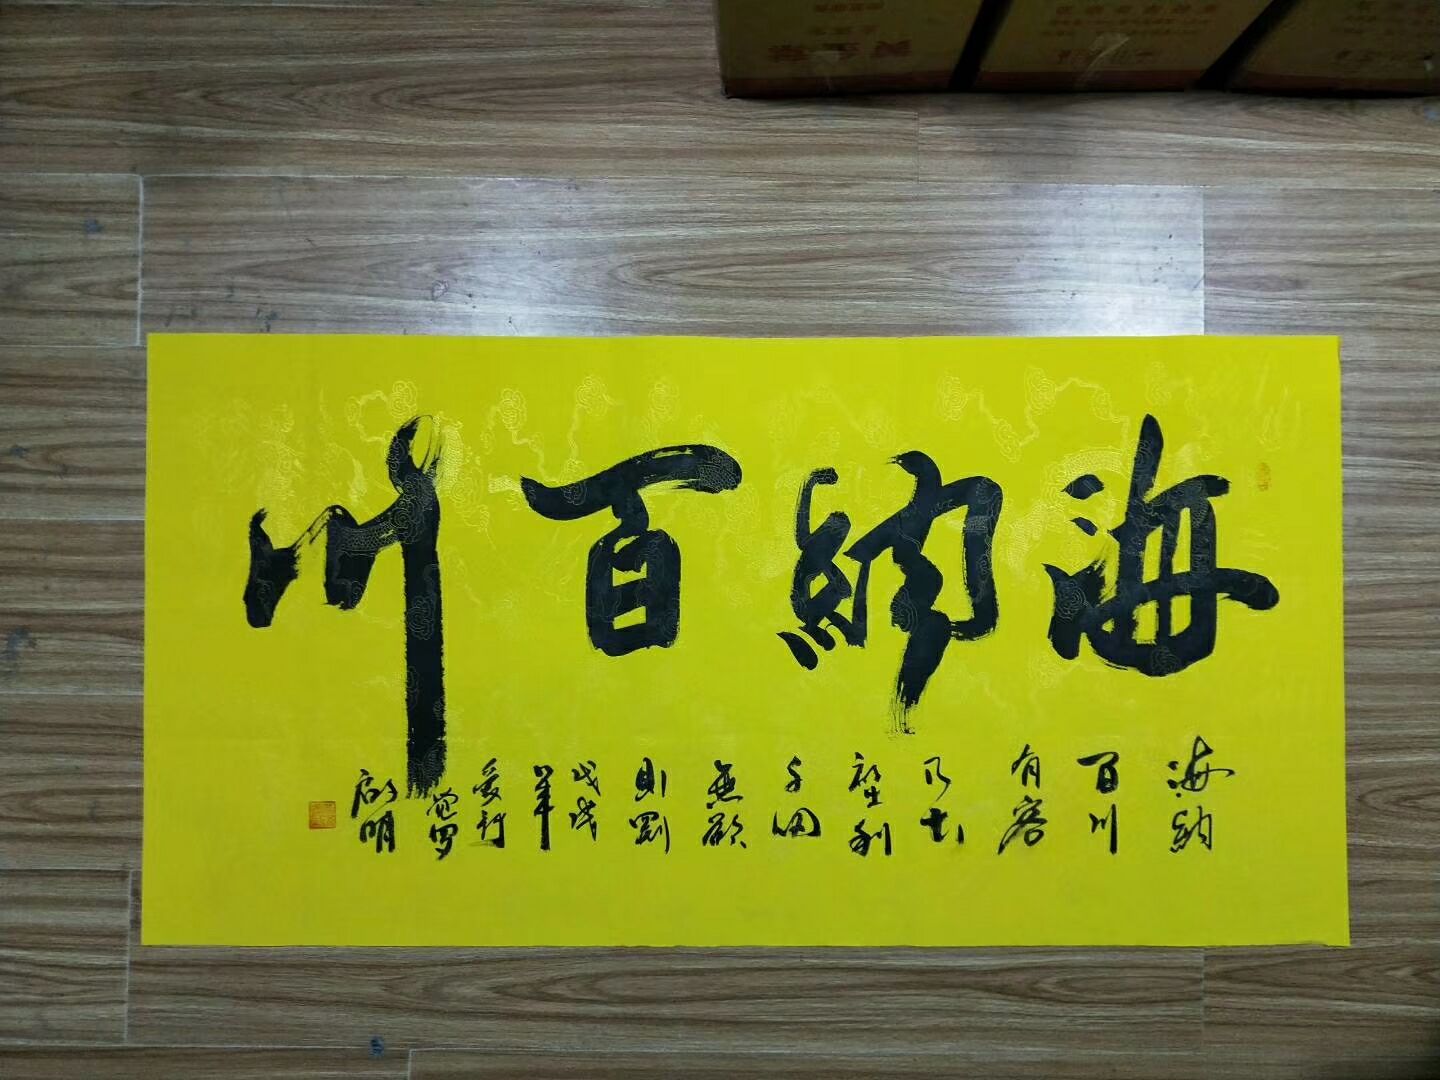 海納百川
海納
百川
有容
乃大
壁立
千仞
無欲
則剛
戊戌
年
愛新
覺罗
啟明